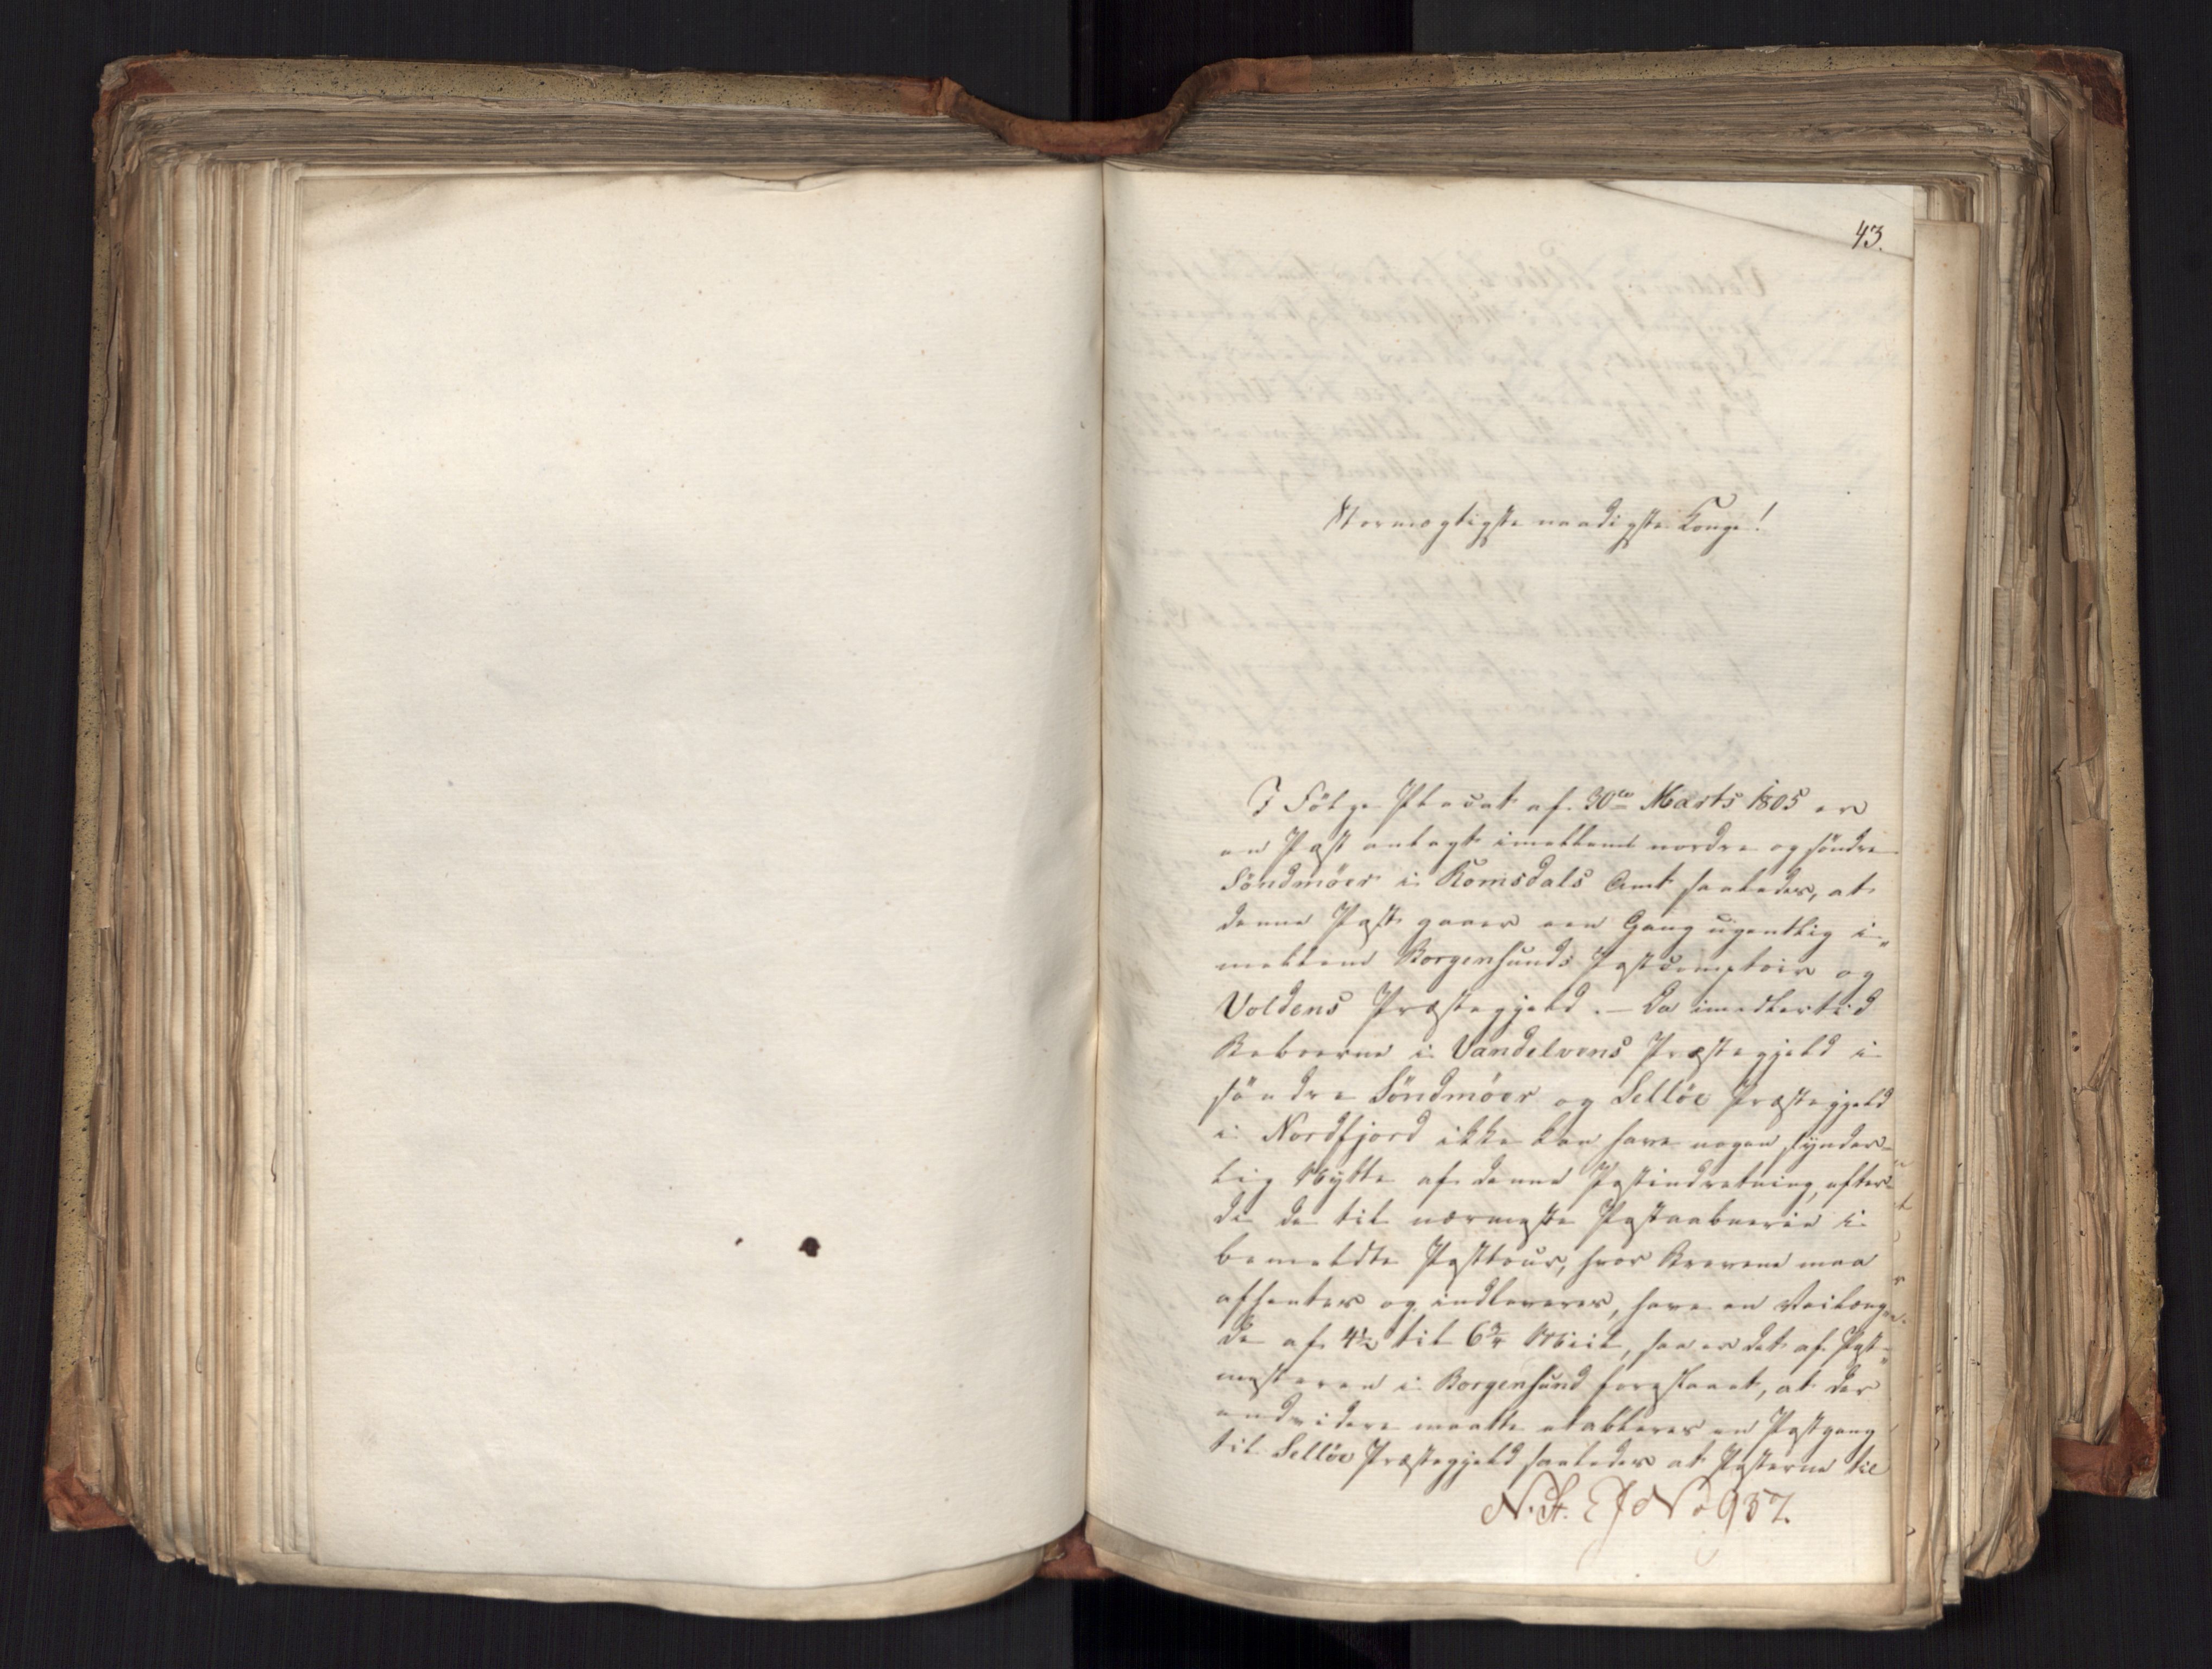 43.
Stormægtigste naadigste Konge!
I Følge Placat af 30te Marts 1805 er
en Post anlagt imellem nordre og søndre
Söndmöer i Romsdals Amt saaledes, at
denne Post gaaer een Gang ugentlig i„
mellem Borgensunds Postcomptoir og
Voldens Præstegjeld. — Da imidlertid
Beboerne i Vandelvens Præstegjeld i
søndre Söndmöer og Sellöe Præstegjeld
i Nordfjord ikke kan have nogen synder-
lig Nytte af denne Postindretning, efter-
di de til nærmeste Postaabnerie i
bemeldte Posttour, hvor Brevene maa
afhentes og indleveres, have en Veilæng-
de af 4½ til 6¾ Miil, saa er det af Post-
mesteren i Borgensund foreslaaet, at der
endvidere maatte etableres en Postgang
til Sellöe Præstegjeld saaledes at Posterne til
N. A. EJ No 937.